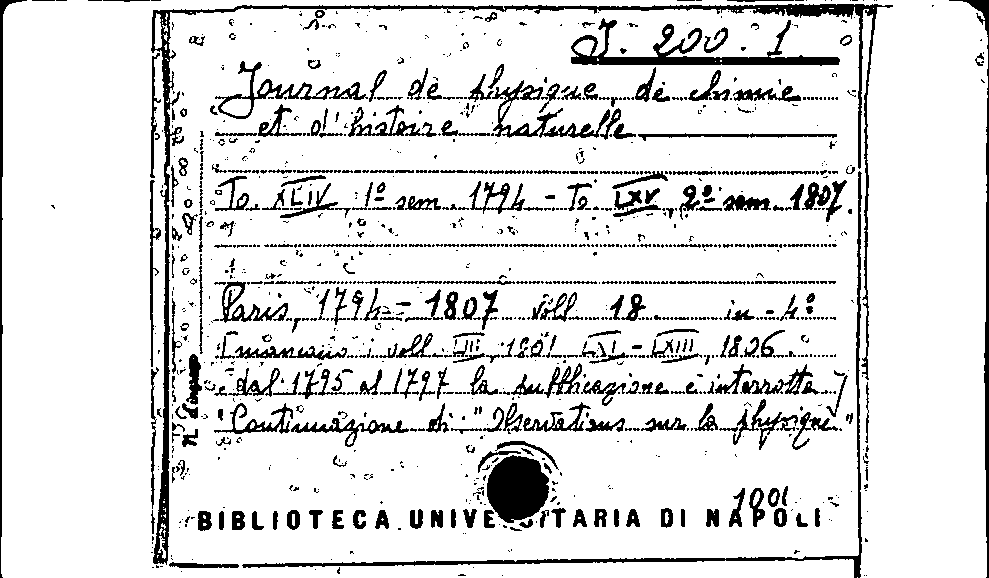 J. 200. 1
Journal de physique, de chimie
et d'histoire naturelle
To. XLIV, 1º sem. 1794 - To. LXV, 2º sem. 1807.
Paris, 1794 = 1807 voll 18. in-4º
[mancano i voll. LIII, 1801 LXI - LXIII, 1806.
dal 1795 al 1797 la pubblicazione è interrotta]
"Continuazione di: "Observations sur la physique"
1001
BIBLIOTECA UNIVERSITARIA DI NAPOLI